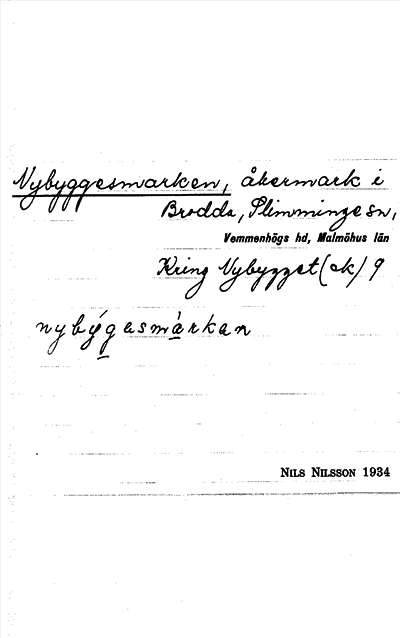 Nybyggesmarken, åkermark i
Brodda, Slimminge sn,
Vemmenhögs hd, Malmöhus län
Kring Nybygget (ek) 9
nybýgasmàrkan
NILS NILSSON 1934